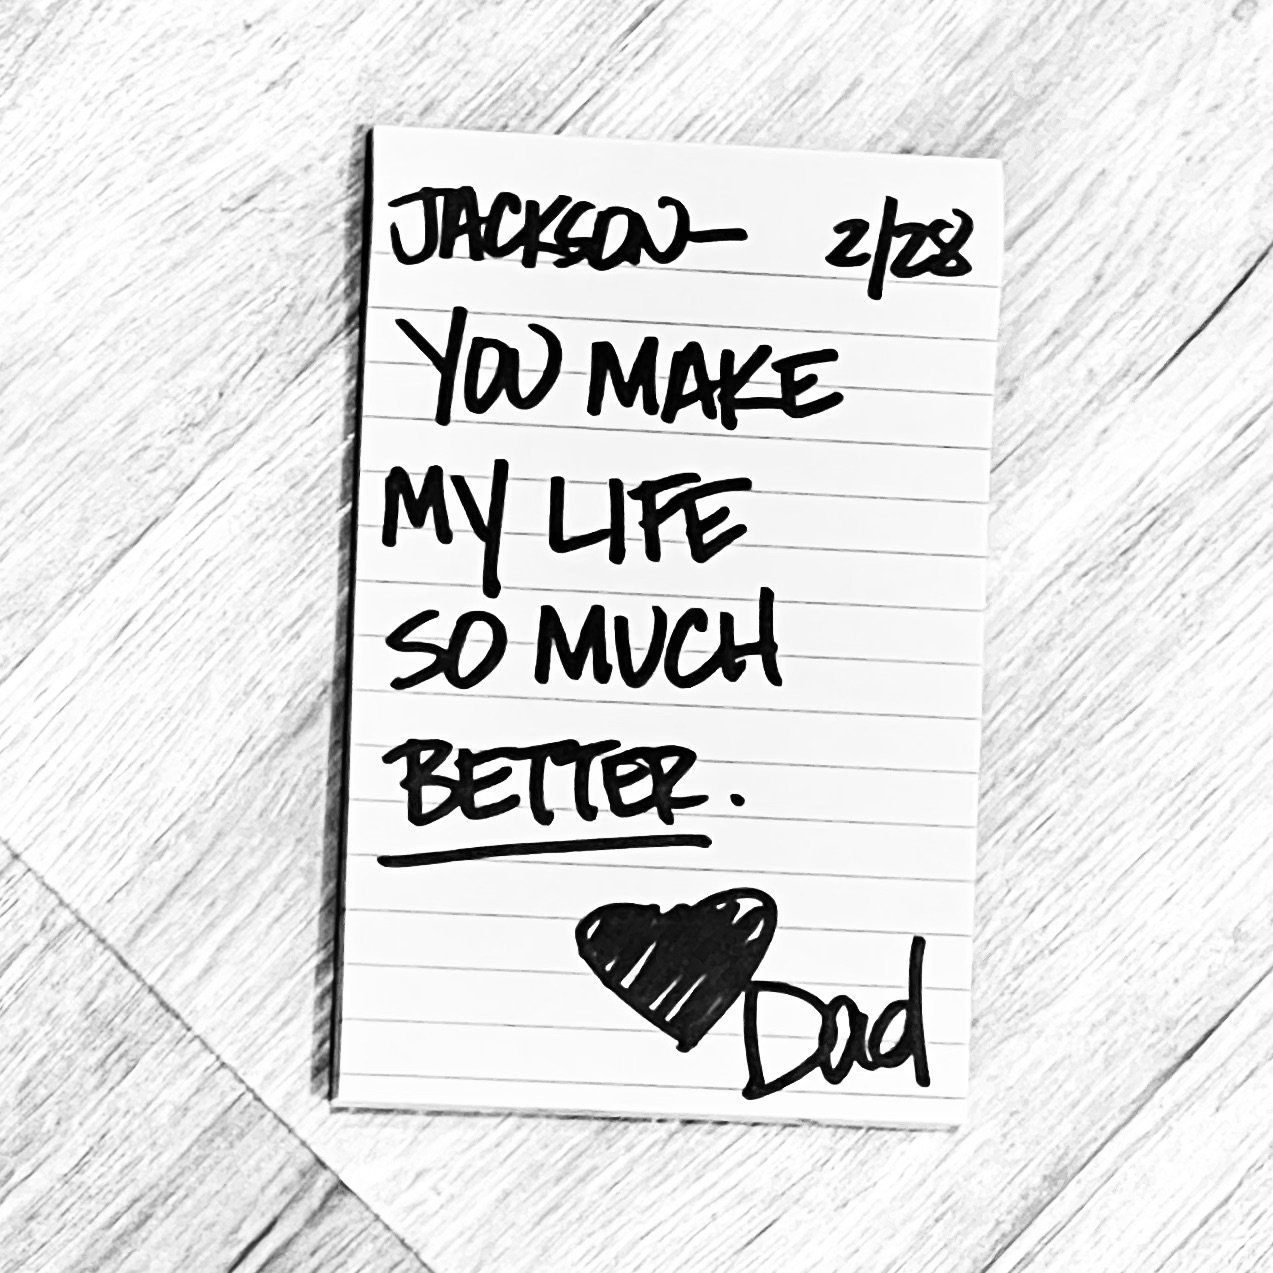 JACKSON— 2/28
YOU MAKE
MY LIFE
SO MUCH
BETTER.
Dad